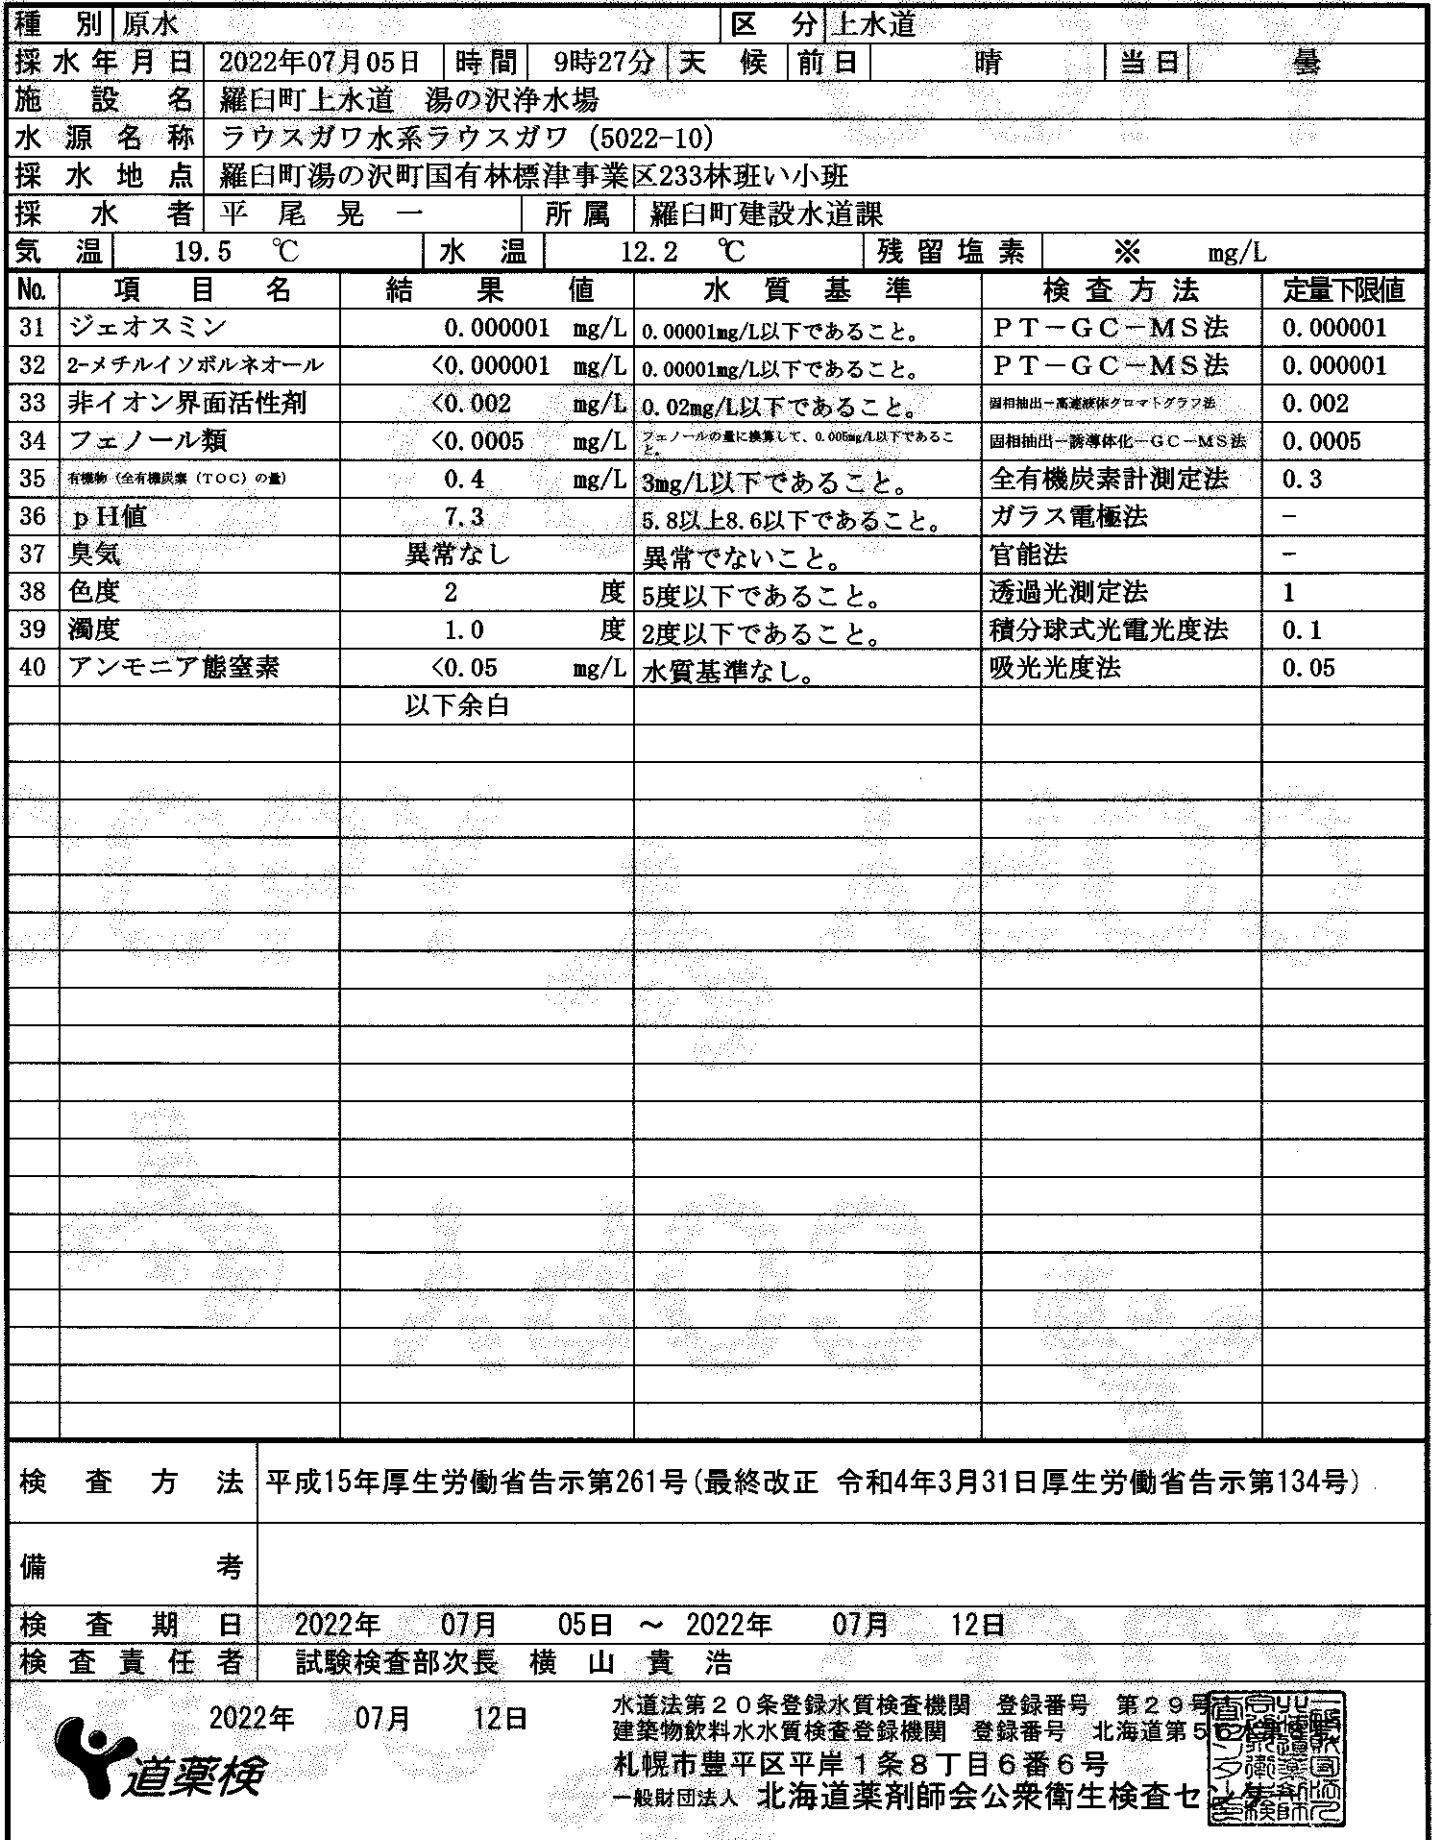 種別 原水 区分 上水道
採水年月日 2022年07月05日 時間 9時27分 天候 前日 晴 当日 曇
施設名 羅臼町上水道 湯の沢浄水場
水源名称 ラウスガワ水系ラウスガワ (5022-10)
採水地点 羅臼町湯の沢町国有林標津事業区233林班い小班
採水者 平尾晃一 所属 羅臼町建設水道課
気温 19.5 ℃ 水温 12.2 ℃ 残留塩素 ※ mg/L
No. 項目名 結果値 水質基準 検査方法 定量下限値
31 ジェオスミン 0.000001 mg/L 0.00001mg/L以下であること。 PT－GC－MS法 0.000001
32 2-メチルイソボルネオール <0.000001 mg/L 0.00001mg/L以下であること。 PT－GC－MS法 0.000001
33 非イオン界面活性剤 <0.002 mg/L 0.02mg/L以下であること。 固相抽出－高速液体クロマトグラフ法 0.002
34 フェノール類 <0.0005 mg/L フェノールの量に換算して、0.005mg/L以下であること。 固相抽出－誘導体化－GC－MS法 0.0005
35 有機物（全有機炭素（TOC）の量） 0.4 mg/L 3mg/L以下であること。 全有機炭素計測定法 0.3
36 pH値 7.3 5.8以上8.6以下であること。 ガラス電極法 －
37 臭気 異常なし 異常でないこと。 官能法 －
38 色度 2 度 5度以下であること。 透過光測定法 1
39 濁度 1.0 度 2度以下であること。 積分球式光電光度法 0.1
40 アンモニア態窒素 <0.05 mg/L 水質基準なし。 吸光光度法 0.05
以下余白
検査方法 平成15年厚生労働省告示第261号(最終改正 令和4年3月31日厚生労働省告示第134号)
備考
検査期日 2022年 07月 05日 ～ 2022年 07月 12日
検査責任者 試験検査部次長 横山貴浩
2022年 07月 12日
道薬検
水道法第20条登録水質検査機関 登録番号 第29号
建築物飲料水水質検査登録機関 登録番号 北海道第5
札幌市豊平区平岸1条8丁目6番6号
一般財団法人 北海道薬剤師会公衆衛生検査センター